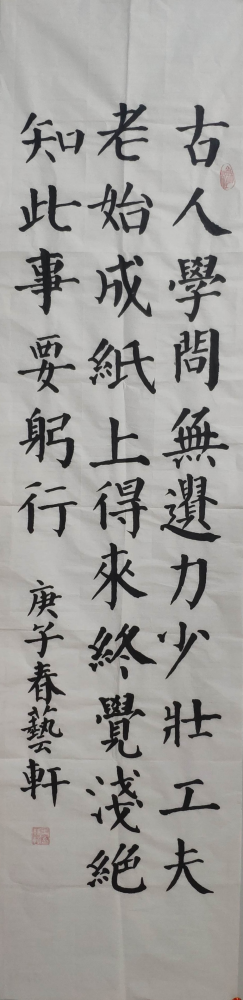 古人學問無遺力少壯工夫
老始成紙上得來終覺淺絕
知此事要躬行
庚子春藝軒